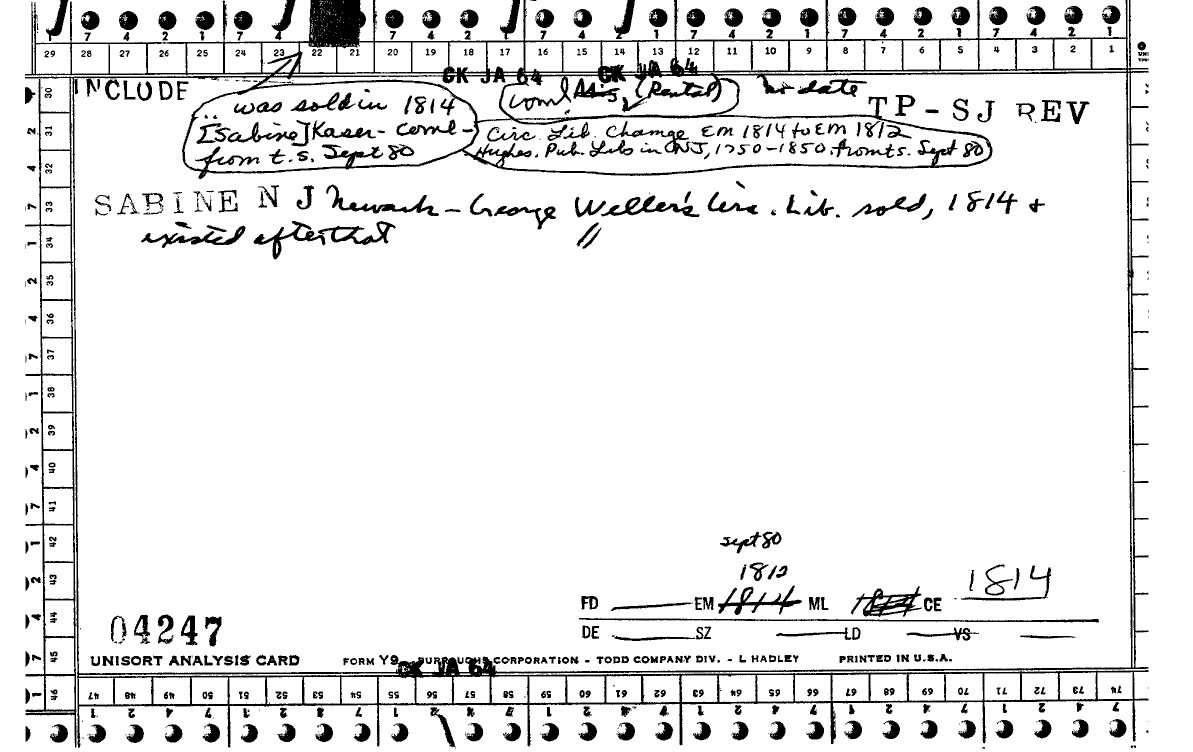 7 4 2 1 7 4 7 4 2 1 7 4 2 1 7 4 2 1 7 4 2 1
29 28 27 26 25 24 23 22 21 20 19 18 17 16 15 14 13 12 11 10 9 8 7 6 5 4 3 2 1
CK JA 64 CK JA 64
INCLUDE
.. was sold in 1814
[Sabine] Kaser - Coml -
from t.s. Sept 80
Coml (Rental)
no date
TP-SJ REV
Circ. Lib. Change EM 1814 to EM 1812
Hughes. Pub. Libs in NJ, 1750-1850 from t.s. Sept 80
SABINE N J Newark - George Weller's Circ. Lib. sold, 1814 &
existed after that
30 31 32 33 34 35 36 37 38 39 40 41 42 43 44 45 46
Sept 80
1812
1814
FD EM 1814 ML 1814 CE
DE SZ LD VS
04247
UNISORT ANALYSIS CARD FORM Y9 BURROUGHS CORPORATION - TODD COMPANY DIV. - L HADLEY PRINTED IN U.S.A.
CK JA 64
47 48 49 50 51 52 53 54 55 56 57 58 59 60 61 62 63 64 65 66 67 68 69 70 71 72 73 74